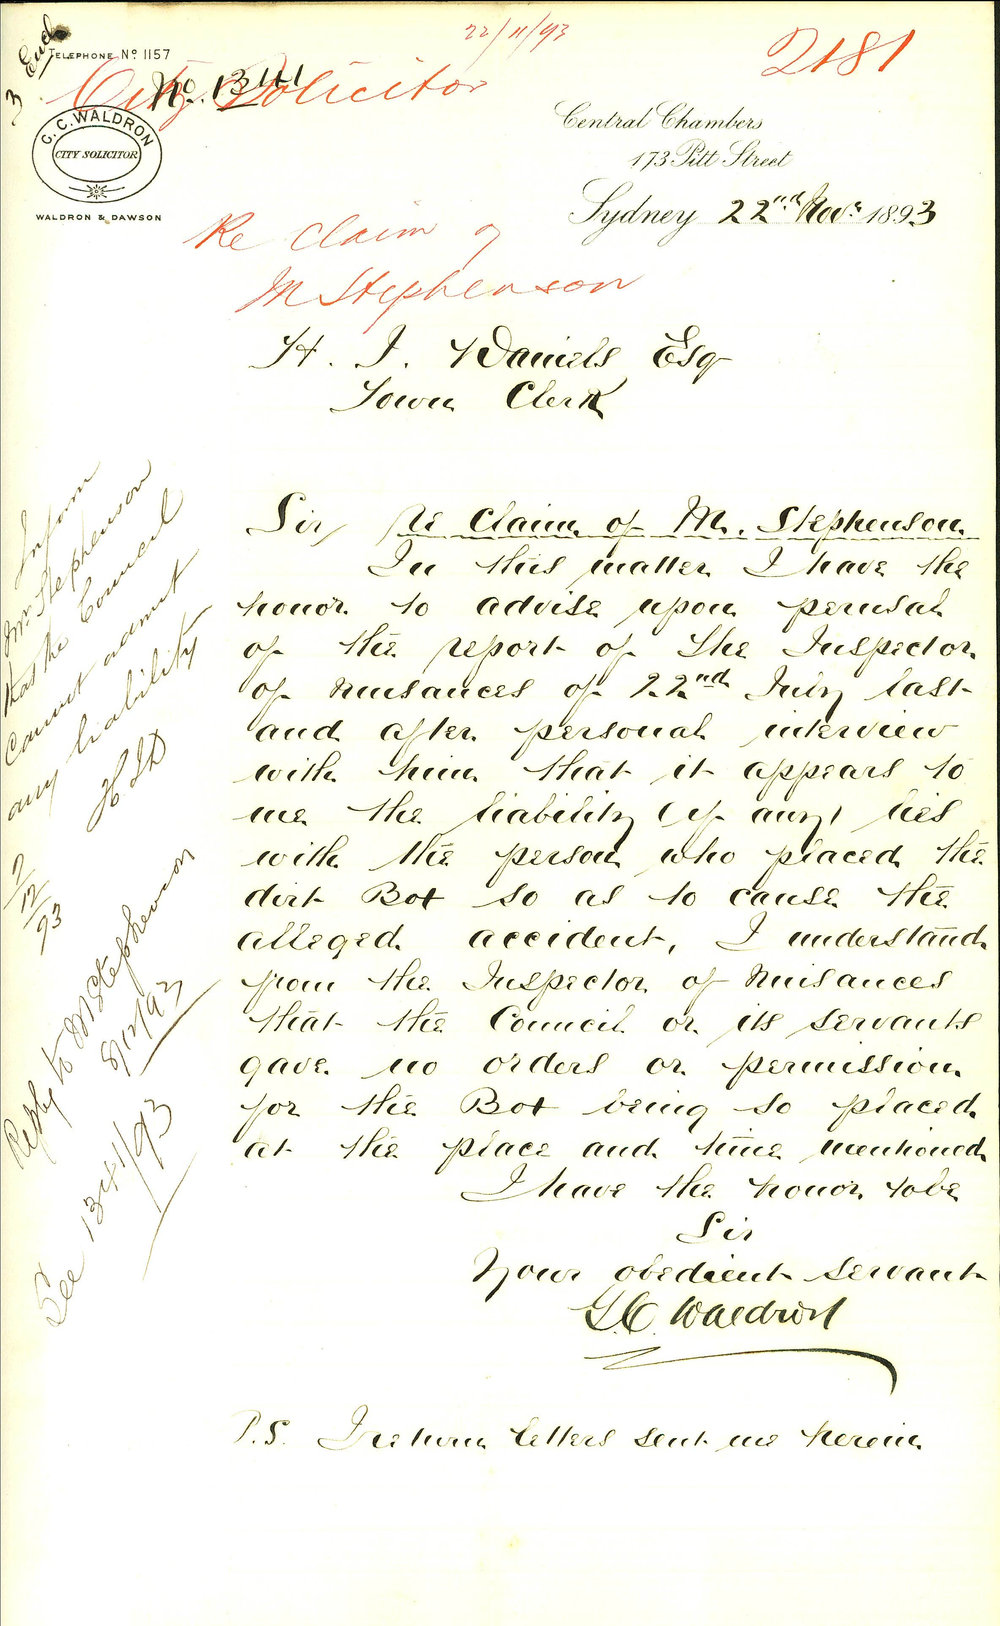 22/11/93
2181
3 Encl
TELEPHONE No. 1157
City Solicitor
No. 1341
G. C. WALDRON
CITY SOLICITOR
WALDRON & DAWSON
Central Chambers
173 Pitt Street
Sydney 22nd Novr 1893
Re Claim of
M Stephenson
H. J. Daniels Esq
Town Clerk
Sir, Re Claim of M. Stephenson
In this matter I have the
honor to advise upon perusal
of the report of the Inspector
of Nuisances of 22nd July last
and after personal interview
with him that it appears to
me the liability (if any) lies
with the person who placed the
dirt Box so as to cause the
alleged accident, I understand
from the Inspector of Nuisances
that the Council or its servants
gave no orders or permission
for the Box being so placed
at the place and time mentioned
I have the honor to be
Sir
Your obedient servant
G. C. Waldron
P.S. I return letters sent me herein
Inform
Mr Stephenson
that the Council
cannot admit
any liability
HJD
7/12/93
Reply to M Stephenson
8/12/93
See 1341/93